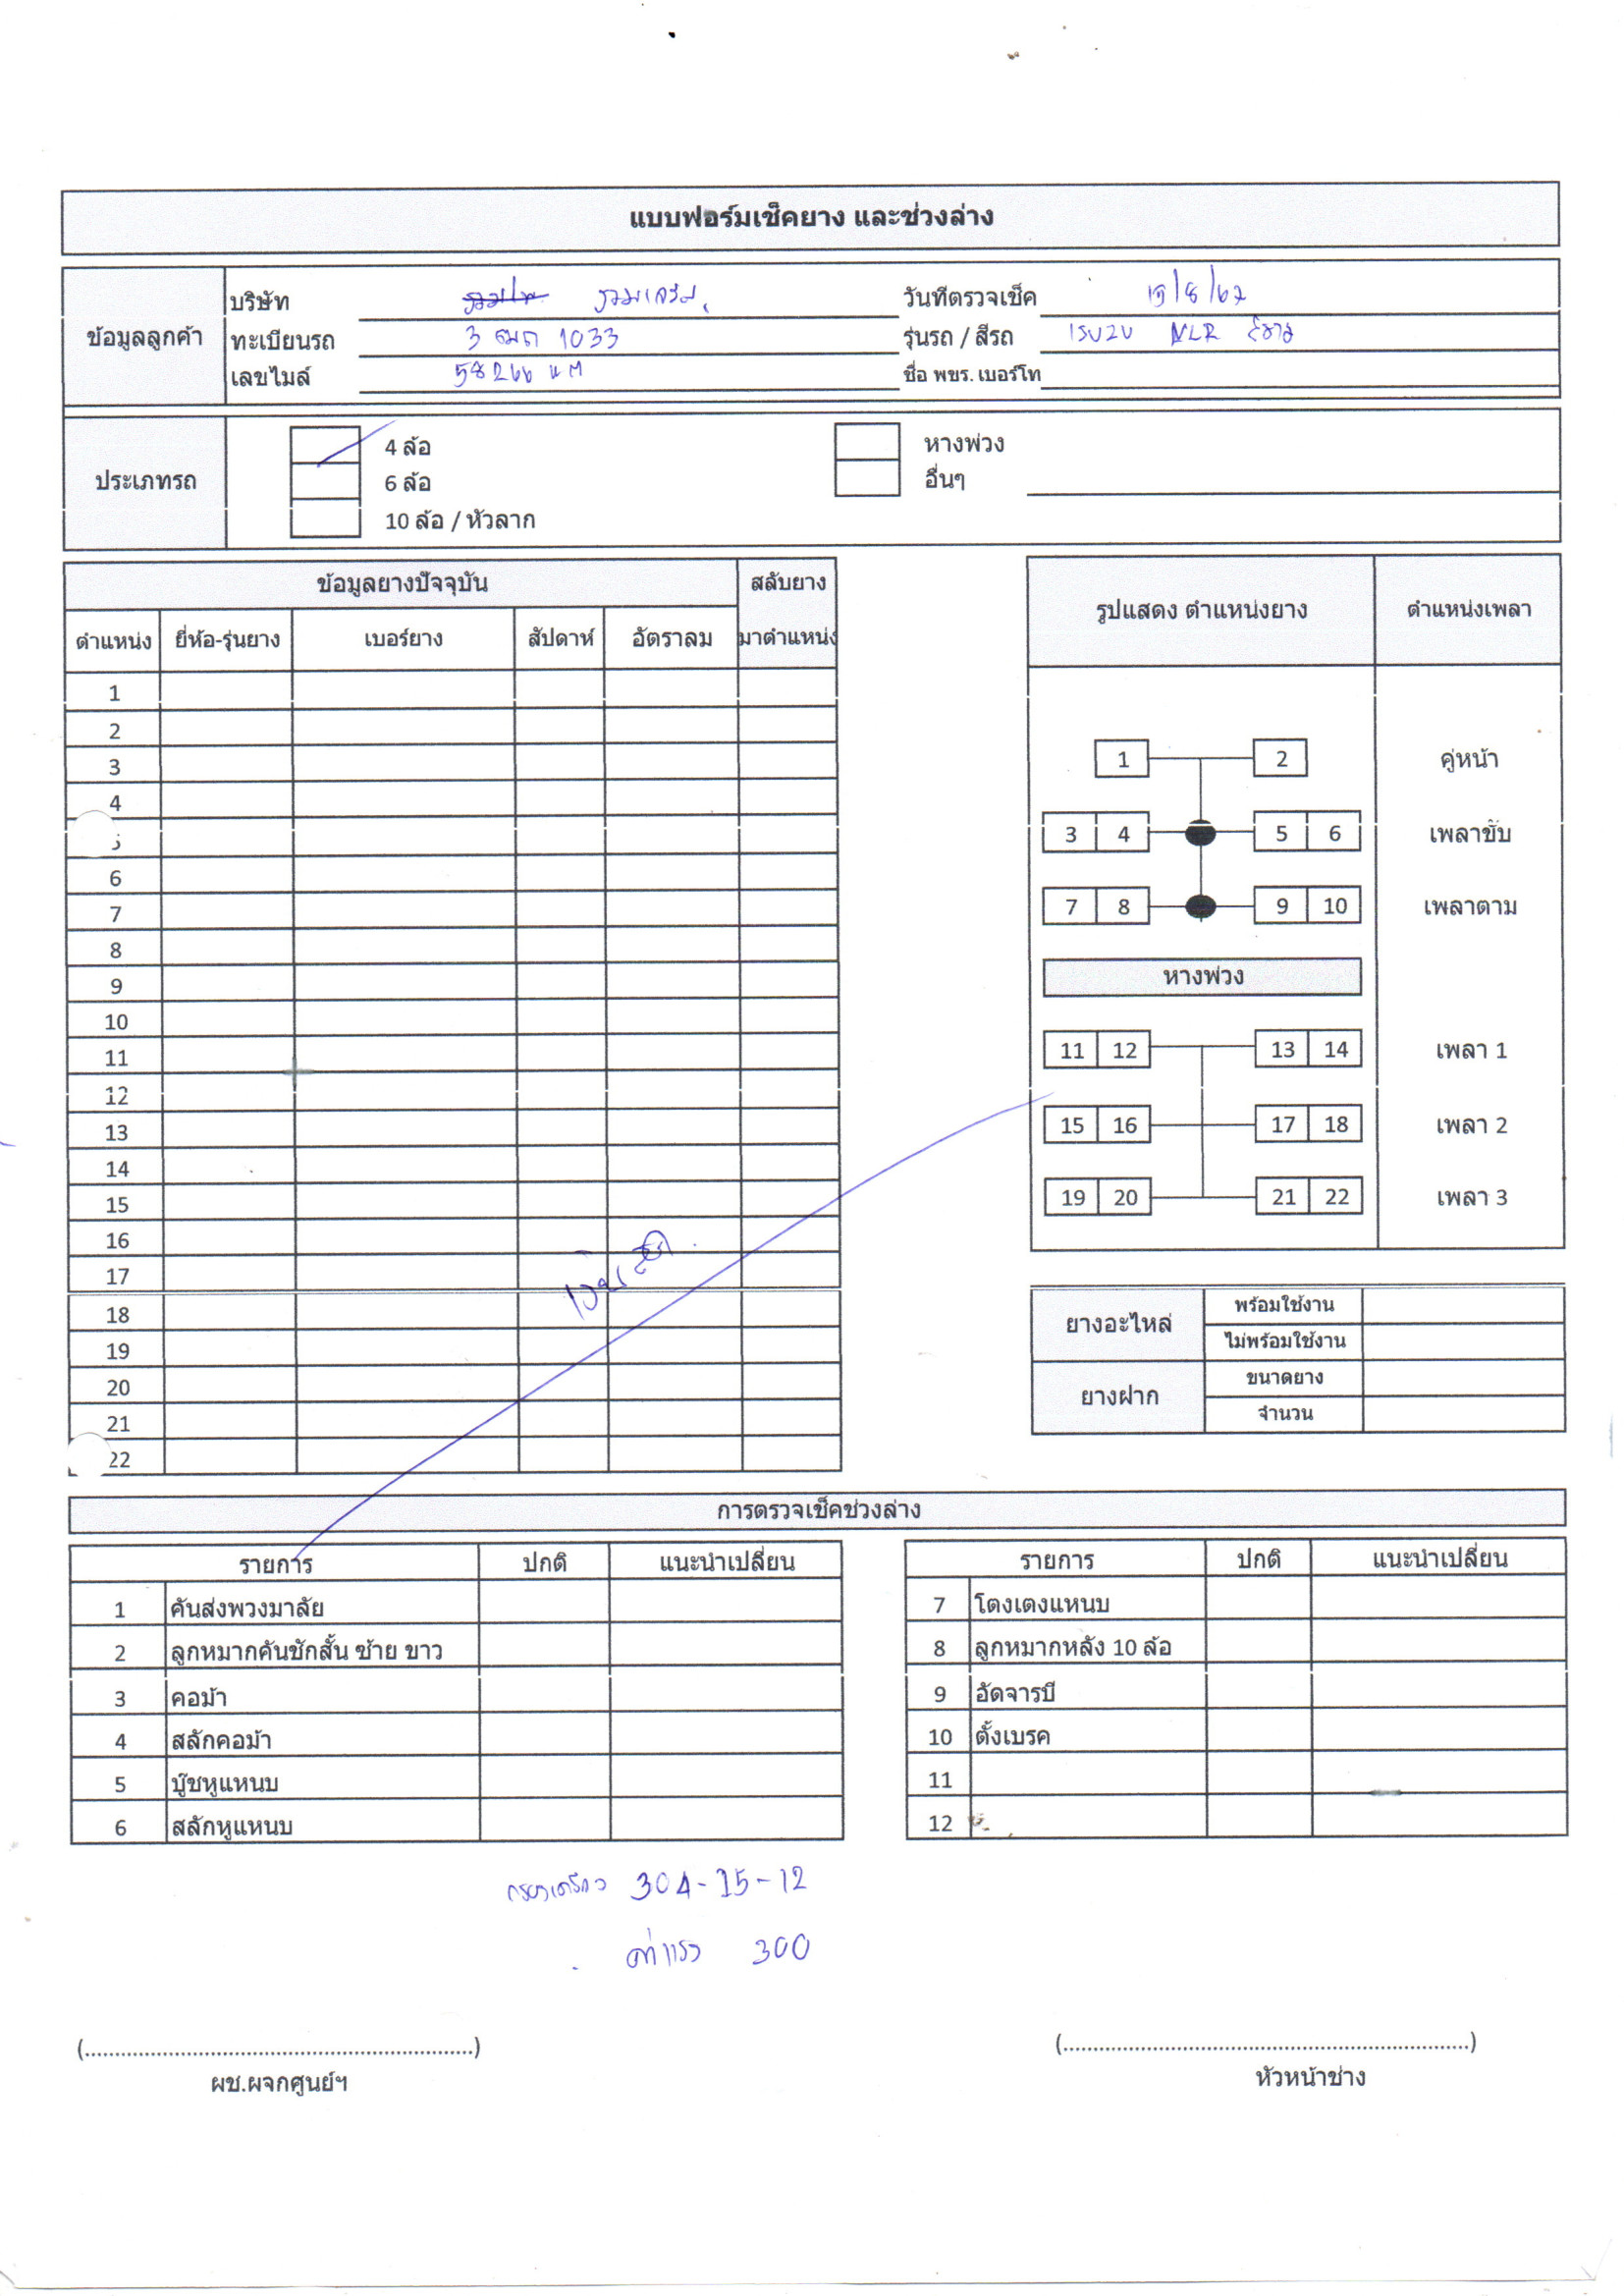 แบบฟอร์มเช็คยาง และช่วงล่าง
ข้อมูลลูกค้า
บริษัท รวมเจริญ วันที่ตรวจเช็ค 19/8/67
ทะเบียนรถ 3 ฒฌ 1033 รุ่นรถ / สีรถ ISUZU NLR สีขาว
เลขไมล์ 58266 ชื่อ พขร. เบอร์โท
ประเภทรถ
4 ล้อ หางพ่วง
6 ล้อ อื่นๆ
10 ล้อ / หัวลาก
ข้อมูลยางปัจจุบัน สลับยาง
ตำแหน่ง ยี่ห้อ-รุ่นยาง เบอร์ยาง สัปดาห์ อัตราลม มาตำแหน่ง
1
2
3
4
5
6
7
8
9
10
11
12
13
14
15
16
17
18
19
20
21
22
รูปแสดง ตำแหน่งยาง ตำแหน่งเพลา
1 2 คู่หน้า
3 4 5 6 เพลาขับ
7 8 9 10 เพลาตาม
หางพ่วง
11 12 13 14 เพลา 1
15 16 17 18 เพลา 2
19 20 21 22 เพลา 3
ยางอะไหล่ พร้อมใช้งาน
ไม่พร้อมใช้งาน
ยางฝาก ขนาดยาง
จำนวน
การตรวจเช็คช่วงล่าง
รายการ ปกติ แนะนำเปลี่ยน
1 คันส่งพวงมาลัย
2 ลูกหมากคันชักสั้น ซ้าย ขาว
3 คอม้า
4 สลักคอม้า
5 บู๊ชหูแหนบ
6 สลักหูแหนบ
รายการ ปกติ แนะนำเปลี่ยน
7 โตงเตงแหนบ
8 ลูกหมากหลัง 10 ล้อ
9 อัดจารบี
10 ตั้งเบรค
11
12
304-15-12
ค่าแรง 300
(....................................................................)
ผช.ผจกศูนย์ฯ
(....................................................................)
หัวหน้าช่าง